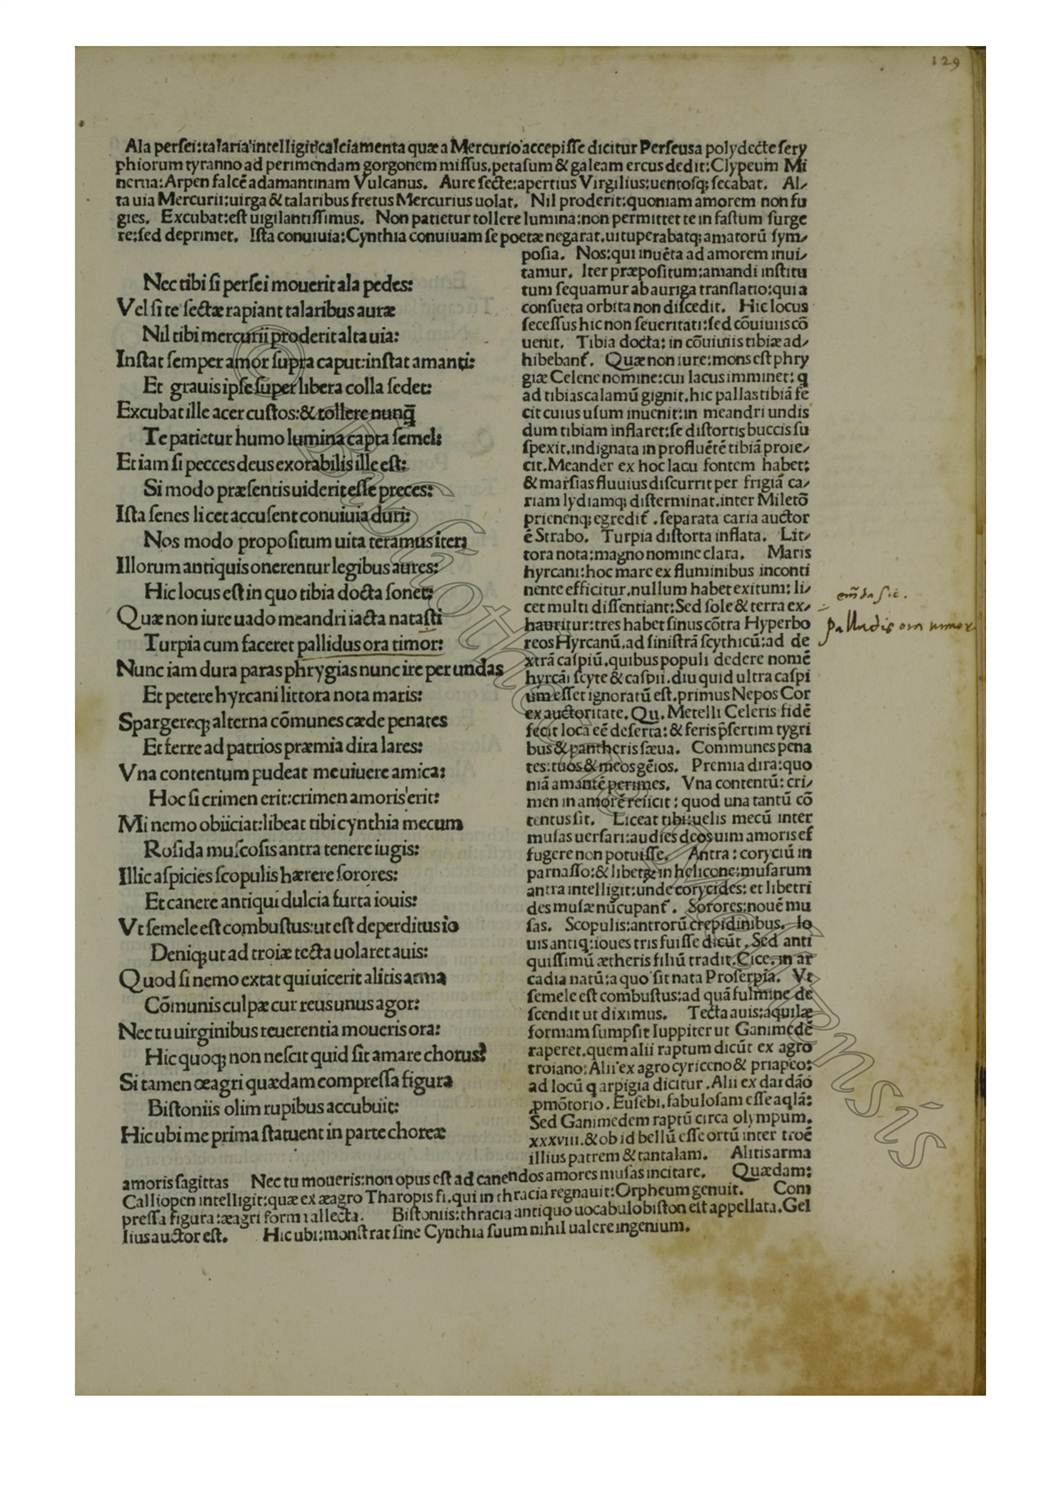 129
Ala persei:talaria intelligit:calciamenta quæ a Mercurio accepisse dicitur Perseus a polydecte sery
phiorum tyranno ad perimendam gorgonem missus,petasum & galeam ercus dedit:Clypeum Mi
nerua:Arpen falcē adamantinam Vulcanus. Aure secte:apertius Virgilius:uentosq; secabat. Al⸗
ta uia Mercurii:uirga & talaribus fretus Mercurius uolat. Nil proderit:quoniam amorem non fu
gies. Excubat:est uigilantissimus. Non patietur tollere lumina:non permittet te in fastum surge
re:sed deprimet. Ista conuiuia:Cynthia conuiuam se poetæ negarat,uituperabatq; amatorū sym⸗
Nec tibi si persei mouerit ala pedes:
Vel si te sectæ rapiant talaribus auræ
Nil tibi mercurii proderit alta uia:
Instat semper amor supra caput:instat amanti:
Et grauis ipse super libera colla sedet:
Excubat ille acer custos:& tollere nunq̄
Te patietur humo lumina capta semel:
Et iam si pecces deus exorabilis ille est:
Si modo præsentis uiderit esse preces:
Ista senes licet accusent conuiuia duri:
Nos modo propositum uita teramus iter:
Illorum antiquis onerentur legibus aures:
Hic locus est in quo tibia docta sonet:
Quæ non iure uado meandri iacta natasti
Turpia cum faceret pallidus ora timor:
Nunc iam dura paras phrygias nunc ire per undas
Et petere hyrcani littora nota maris:
Spargereq; alterna cōmunes cæde penates
Et ferre ad patrios præmia dira lares:
Vna contentum pudeat me uiuere amica:
Hoc si crimen erit:crimen amoris erit:
Mi nemo obiiciat:libeat tibi cynthia mecum
Rosida muscosis antra tenere iugis:
Illic aspicies scopulis hærere sorores:
Et canere antiqui dulcia furta iouis:
Vt semele est combustus:ut est deperditus io
Deniq; ut ad troiæ tecta uolaret auis:
Quod si nemo extat qui uicerit alitis arma
Cōmunis culpæ cur reus unus agor:
Nec tu uirginibus reuerentia moueris ora:
Hic quoq; non nescit quid sit amare chorus:
Si tamen œagri quædam compressa figura
Bistoniis olim rupibus accubuit:
Hic ubi me prima statuent in parte choreæ
posia. Nos:qui inuēta ad amorem inui⸗
tamur. Iter præpositum:amandi institu
tum sequamur ab auriga translatio:qui a
consueta orbita non discedit. Hic locus
secessus hic non seueritati:sed cōuiuiis cō
uenit. Tibia docta: in cōuiuiis tibiæ ad⸗
hibebant̄. Quæ non iure:mons est phry
giæ Celene nomine:cui lacus imminet: q
ad tibias calamū gignit,hic pallas tibiā fe
cit cuius usum inuenit:in meandri undis
dum tibiam inflaret:se distortis buccis su
spexit,indignata in profluētē tibiā proie⸗
cit,Meander ex hoc lacu fontem habet:
& marsias fluuius discurrit per frigiā ca⸗
riam lydiamq; disterminat,inter Miletō
prienenq; egredit̄ . separata caria auctor
ē Strabo. Turpia distorta inflata. Lit⸗
tora nota:magno nomine clara. Maris
hyrcani:hoc mare ex fluminibus inconti
nente efficitur,nullum habet exitum: li⸗
cet multi dissentiant:Sed sole & terra ex⸗
hauritur:tres habet sinus cōtra Hyperbo
reos Hyrcanū,ad sinistrā scythicū:ad de
xtrā caspiū,quibus populi dedere nomē
hyrcāi scyte & caspii,diu quid ultra caspi
um esset ignoratū est,primus Nepos Cor
ex auctoritate. Qu. Metelli Celeris fidē
fecit loca eē deserta: & feris p̄sertim tygri
bus & pantheris sæua. Communes pena
tes:tuos & meos gēios. Premia dira:quo
niā amantē perimes. Vna contentū: cri⸗
men in amorē reiicit : quod una tantū cō
tentus sit. Liceat tibi:uelis mecū inter
musas uersari:audies deos uim amoris ef
fugere non potuisse. Antra : coryciū in
parnasso:& libetre in helicone:musarum
antra intelligit:unde corycides: et libetri
des musæ nūcupant̄. Sorores:nouē mu
sas. Scopulis:antrorū crepidinibus. Io
uis antiq:ioues tris fuisse dicūt. Sed anti
quissimū ætheris filiū tradit.Cice.in ar
cadia natū:a quo sit nata Proserpīa. Vt
semele est combustus:ad quā fulmine de
scendit ut diximus. Tecta auis:aquilæ
formam sumpsit Iuppiter ut Ganimedē
raperet,quem alii raptum dicūt ex agro
troiano: Alii ex agro cyriceno & priapeo:
ad locū q arpigia dicitur . Alii ex dardāo
p̱mōtorio. Eusebi.fabulosam esse aqlā:
Sed Ganimedem raptū circa olympum.
xxxviii.& ob id bellū esse ortū inter troē
illius patrem & tantalam. Alitis arma
amoris sagittas Nec tu moueris:non opus est ad canendos amores musas incitare. Quædam:
Calliopen intelligit:quæ ex æagro Tharopis fi.qui in thracia regnauit:Orpheum genuit. Com
pressa figura:æagri forma allecta. Bistoniis:thracia antiquo uocabulo biston est appellata.Gel
lius auctor est. Hic ubi:monstrat sine Cynthia suum nihil ualere ingenium.
palladis ora tumor